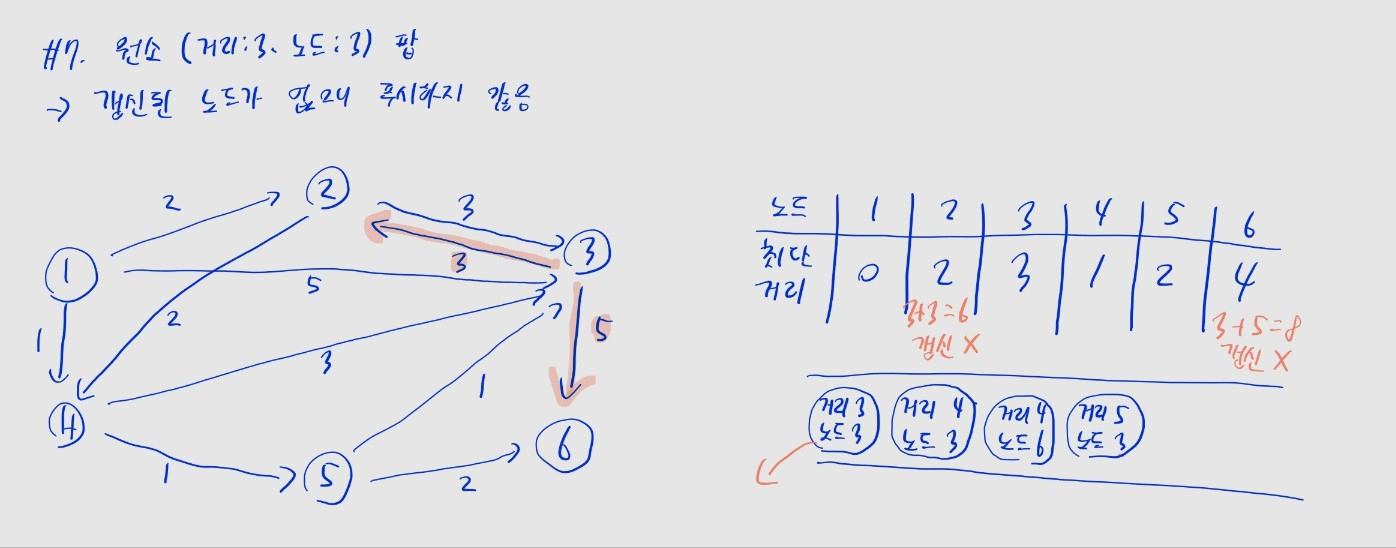 #7. 원소 (거리:3, 노드:3) 팝
→ 갱신된 노드가 없으니 푸시하지 않음
2
2
3
3
3
1
5
1
2
5
3
1
4
1
5
2
6
노드 1 2 3 4 5 6
최단 거리 0 2 3 1 2 4
3+3=6
갱신 X
3+5=8
갱신 X
거리 3 거리 4 거리 4 거리 5
노드 3 노드 3 노드 6 노드 3